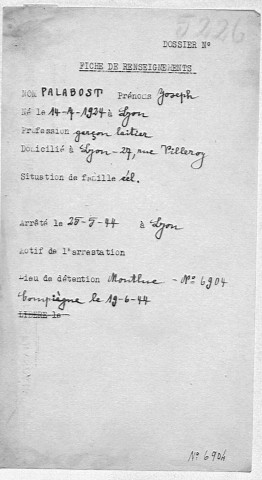 5226
DOSSIER N°
FICHE DE RENSEIGNEMENTS
NOM PALABOST Prénoms Joseph
Né le 14-7-1924 à Lyon
Profession garçon laitier
Domicilié à Lyon - 27, rue Villeroy
Situation de famille cél.
Arrêté le 25-5-44 à Lyon
Motif de l'arrestation
Lieu de détention Montluc - N° 6904
Compiègne le 19-6-44
LIBERE le
N° 6904